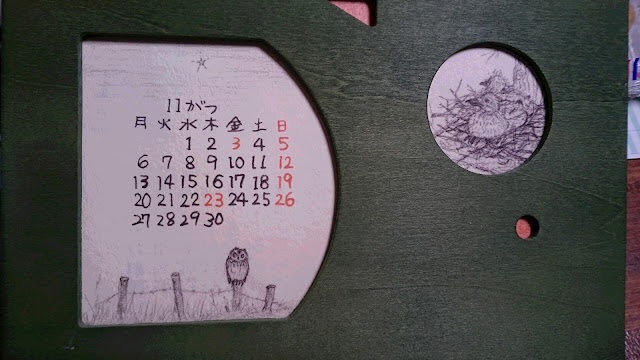 11がつ
月 火 水 木 金 土 日
1 2 3 4 5
6 7 8 9 10 11 12
13 14 15 16 17 18 19
20 21 22 23 24 25 26
27 28 29 30